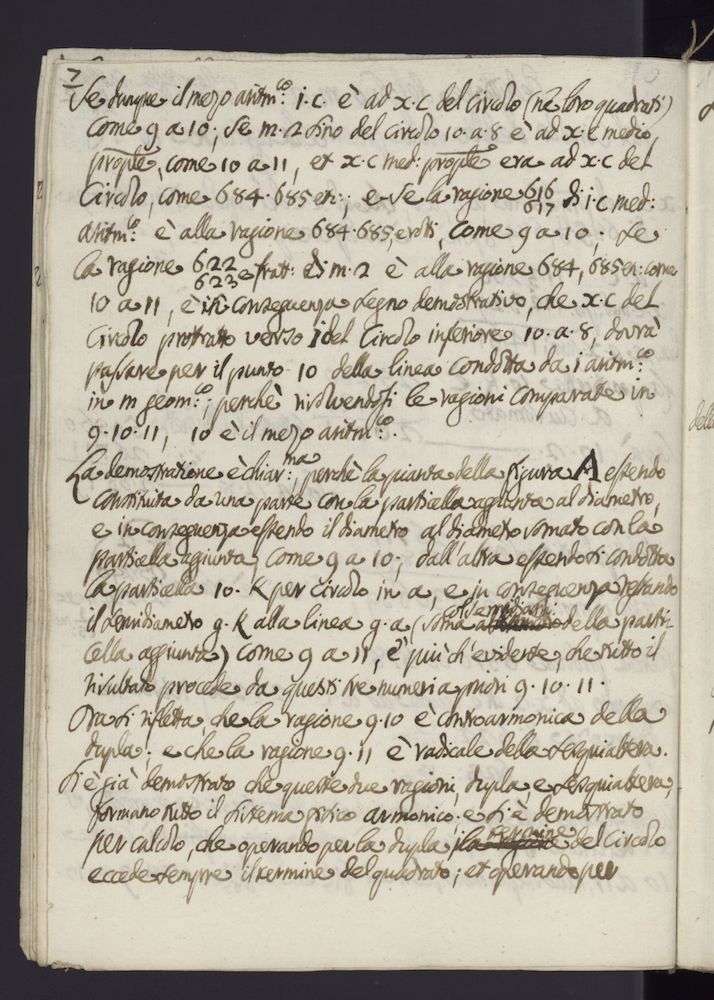 7
Se dunque il mezo aritm:co i.c. è ad x.c del circolo (ne loro quadrati)
come 9 a 10; se m.2 sino del circolo 10.a.8 è ad x.c medio
prople, come 10 a 11, et x.c med: prople era ad x.c del
Circolo, come 684.685 etc:; e se la ragione 616/617 di i.c med:
aritm:co è alla ragione 684.685, e rotti, come 9 a 10; se
la ragione 622/623 e fratt: di m.2 è alla ragione 684, 685 etc: come
10 a 11, è in conseguenza segno demostrativo, che x.c del
Circolo protratto verso i del Circolo inferiore 10.a.8, dovrà
passare per il punto 10 della linea condotta da i aritm:co
in m geom:co; perchè risolvendosi le ragioni comparate in
9.10.11, 10 è il mezo aritm:co.
La demostratione è chiar:ma, perchè la pianta della figura A essendo
constituita da una parte con la particella aggiunta al diametro,
e in conseguenza essendo il diametro al diametro somato con la
particella agiunta, come 9 a 10; dall'altra essendosi condotta
la particella 10.K per circolo in a, e in conseguenza restando
il semidiametro g.K alla linea g.a, (soma col semidiam: della parti-
cella aggiunta) come 9 a 11, è più ch'evidente, che tutto il
risultato procede da questi tre numeri a priori 9.10.11.
Ora si rifletta, che la ragione 9.10 è controarmonica della
dupla; e che la ragione 9.11 è radicale della sesquialtera.
Si è già demostrato che queste due ragioni, dupla e sesquialtera,
formano tutto il sistema fisico armonico; e si è demostrato
per calcolo, che operando per la dupla, il termine del Circolo
eccede sempre il termine del quadrato; et operando per